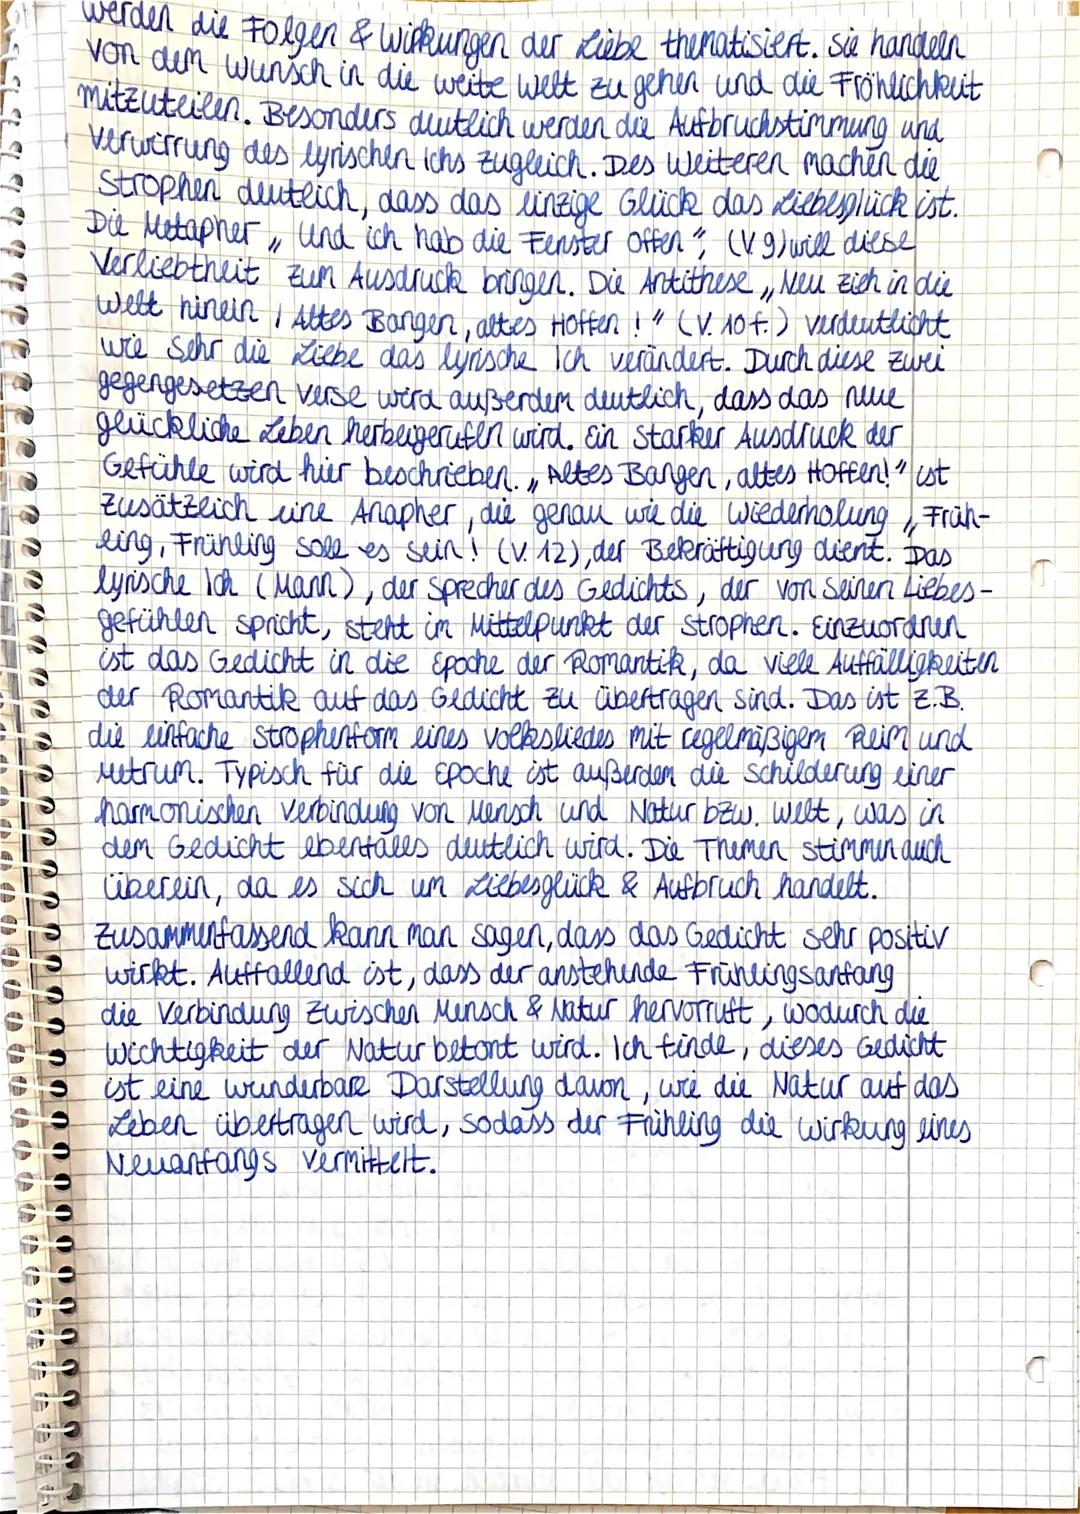 werden die Folgen & Wirkungen der Liebe thematisiert. Sie handeln
von dem Wunsch in die weite Welt zu gehen und die Fröhlichkeit
mitzuteilen. Besonders deutlich werden die Aufbruchstimmung und
Verwirrung des lyrischen Ichs zugleich. Des Weiteren machen die
Strophen deutlich, dass das einzige Glück das Liebesglück ist.
Die Metapher „Und ich hab die Fenster offen", (V. 9) will diese
Verliebtheit zum Ausdruck bringen. Die Antithese „Neu zieh in die
Welt hinein / Altes Bangen, altes Hoffen!" (V. 10 f.) verdeutlicht
wie sehr die Liebe das lyrische Ich verändert. Durch diese zwei
gegengesetzen Verse wird außerdem deutlich, dass das neue
glückliche Leben herbeigerufen wird. Ein starker Ausdruck der
Gefühle wird hier beschrieben. „Altes Bangen, altes Hoffen!" ist
zusätzlich eine Anapher, die genau wie die Wiederholung „Früh-
ling, Frühling soll es sein! (V. 12), der Bekräftigung dient. Das
lyrische Ich (Mann), der Sprecher des Gedichts, der von seinen Liebes-
gefühlen spricht, steht im Mittelpunkt der Strophen. Einzuordnen
ist das Gedicht in die Epoche der Romantik, da viele Auffälligkeiten
der Romantik auf das Gedicht zu übertragen sind. Das ist z.B.
die einfache Strophenform eines Volksliedes mit regelmäßigem Reim und
Metrum. Typisch für die Epoche ist außerdem die Schilderung einer
harmonischen Verbindung von Mensch und Natur bzw. Welt, was in
dem Gedicht ebenfalls deutlich wird. Die Themen stimmen auch
überein, da es sich um Liebesglück & Aufbruch handelt.
Zusammenfassend kann man sagen, dass das Gedicht sehr positiv
wirkt. Auffallend ist, dass der anstehende Frühlingsanfang
die Verbindung zwischen Mensch & Natur hervorruft, wodurch die
Wichtigkeit der Natur betont wird. Ich finde, dieses Gedicht
ist eine wunderbare Darstellung davon, wie die Natur auf das
Leben übertragen wird, sodass der Frühling die Wirkung eines
Neuanfangs vermittelt.